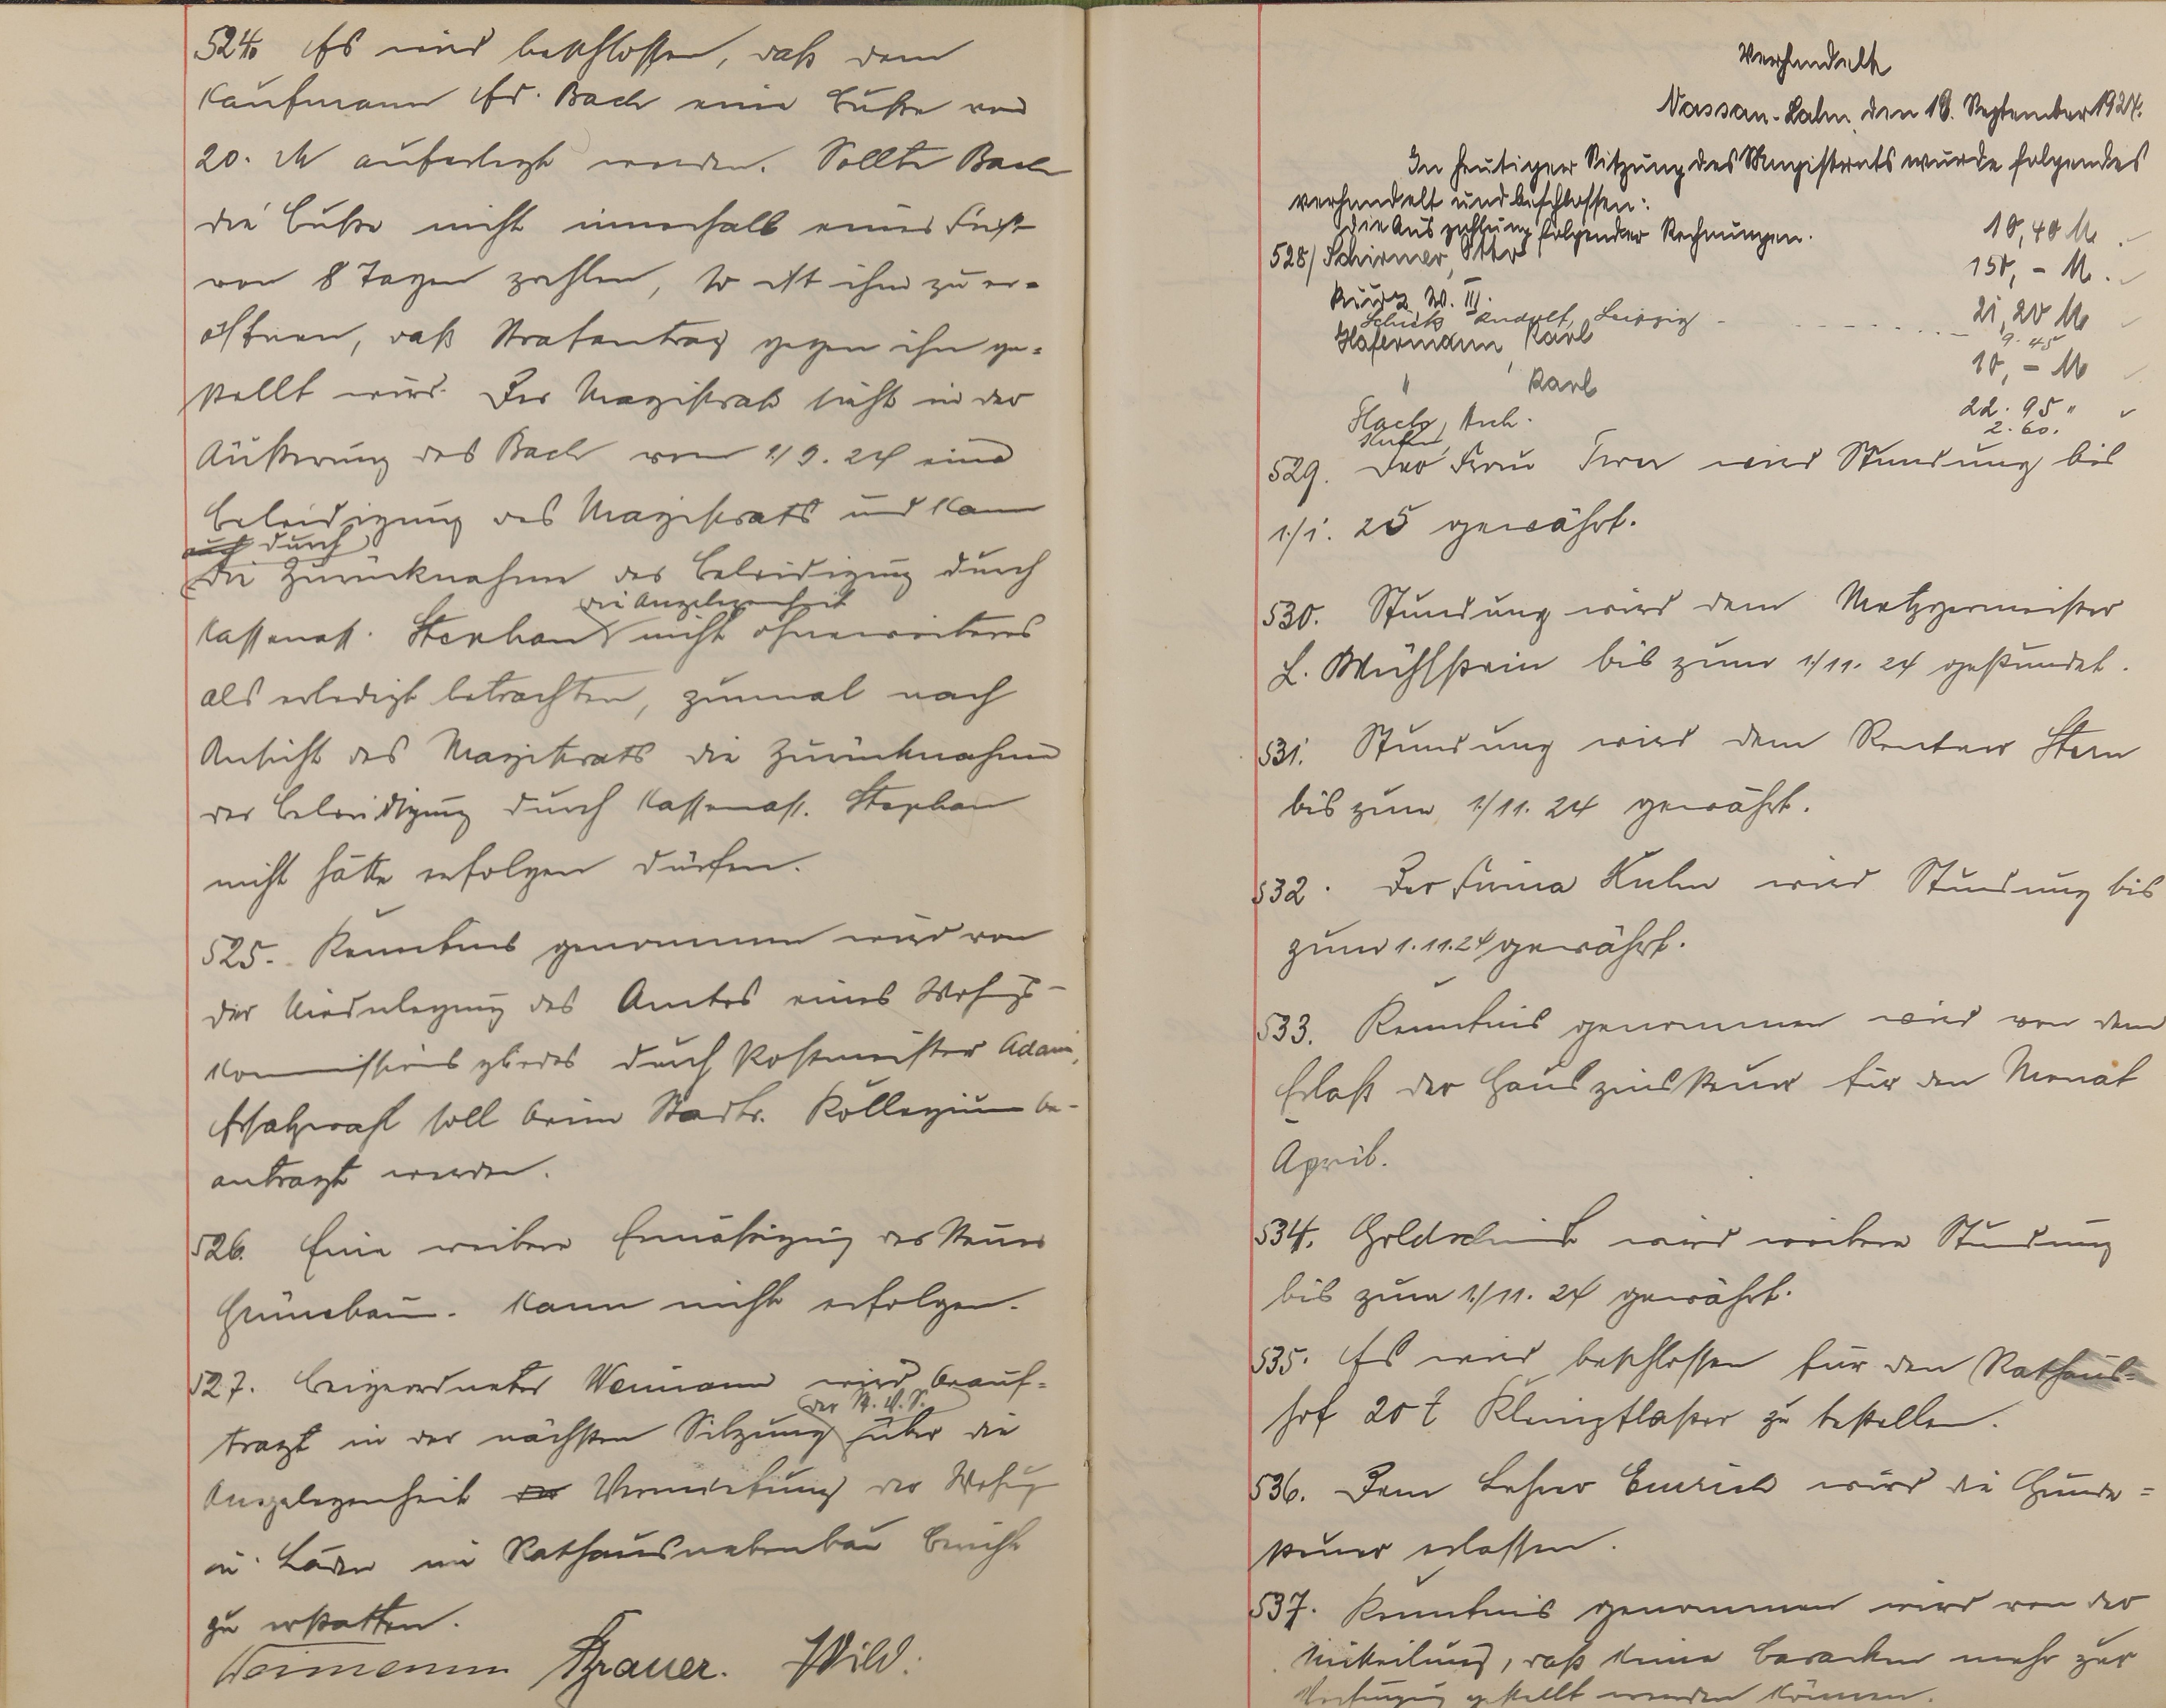 524. Es wird beschlossen, daß dem
Kaufmann Ed. Bach eine Buße von
20. M auferlegt werden. Sollte Bach
die Buße nicht innerhalb einer Frist
von 8 Tagen zahlen, so ist ihm zu er-
öffnen, daß Strafantrag gegen ihn ge-
stellt wird. Der Magistrat sieht in der
Äußerung des Bach vom 1/9. 24 eine
Beleidigung des Magistrats und kann
auch durch
die Zurücknahme der Beleidigung durch
die Angelegenheit
Kassenass. Stephan nicht ohneweiteres
als erledigt betrachten, zumal nach
Ansicht des Magistrats die Zurücknahme
der Beleidigung durch Kassenass. Stephan
nicht hätte erfolgen dürfen.
525. Kenntnis genommen wird von
der Niederlegung des Amtes eines Wohngs-
kommissionsgliedes durch Postmeister Adam,
Ersatzwahl soll beim Stadtv. Kollegium be-
antragt werden.
526. Eine weitere Ermäßigung der Steuer
Grünebaum. kann nicht erfolgen.
527. Beigeordneter Weimann wird beauf-
der St. V. S.
tragt in der nächsten Sitzung über die
Angelegenheit der Vermietung der Wohng
u. Läden im Rathausnebenbau Bericht
zu erstatten.
Weimann Brauer. Wild.
Verhandelt
Nassau-Lahn, den 18. September 1924.
In heutiger Sitzung des Magistrats wurde folgendes
verhandelt und beschlossen:
die Auszahlung folgender Rechnungen.
528/ Schirmer, Otto 10,40 M.
Kurz W. III. 150,- M.
Schick Rudolf, Leipzig - 21,20 M
Hafermann, Karl 9. 45
" Karl 10,- M
Flach, Anh. 22. 95 "
Kuhn, 2. 60.
529. Der Frau wird Stundung bis
1./1. 25 gewährt.
530. Stundung wird dem Metzgermeister
L. Mühlstein bis zum 1/11. 24 gestundet.
531. Stundung wird dem Rentner Stern
bis zum 1/11. 24 gewährt.
532. Der Firma Kuhn wird Stundung bis
zum 1.11.24 gewährt.
533. Kenntnis genommen wird von dem
Erlaß der Hauszinssteuer für den Monat
April.
534. Goldschmidt wird weitere Stundung
bis zum 1/11. 24 gewährt.
535. Es wird beschlossen für den Rathaus-
hof 20 t Kleinpflaster zu bestellen.
536. Dem Lehrer Emrich wird die Hunde-
steuer erlassen.
537. Kenntnis genommen wird von der
Mitteilung, daß keine Baracken mehr zur
Verfügung gestellt werden können.